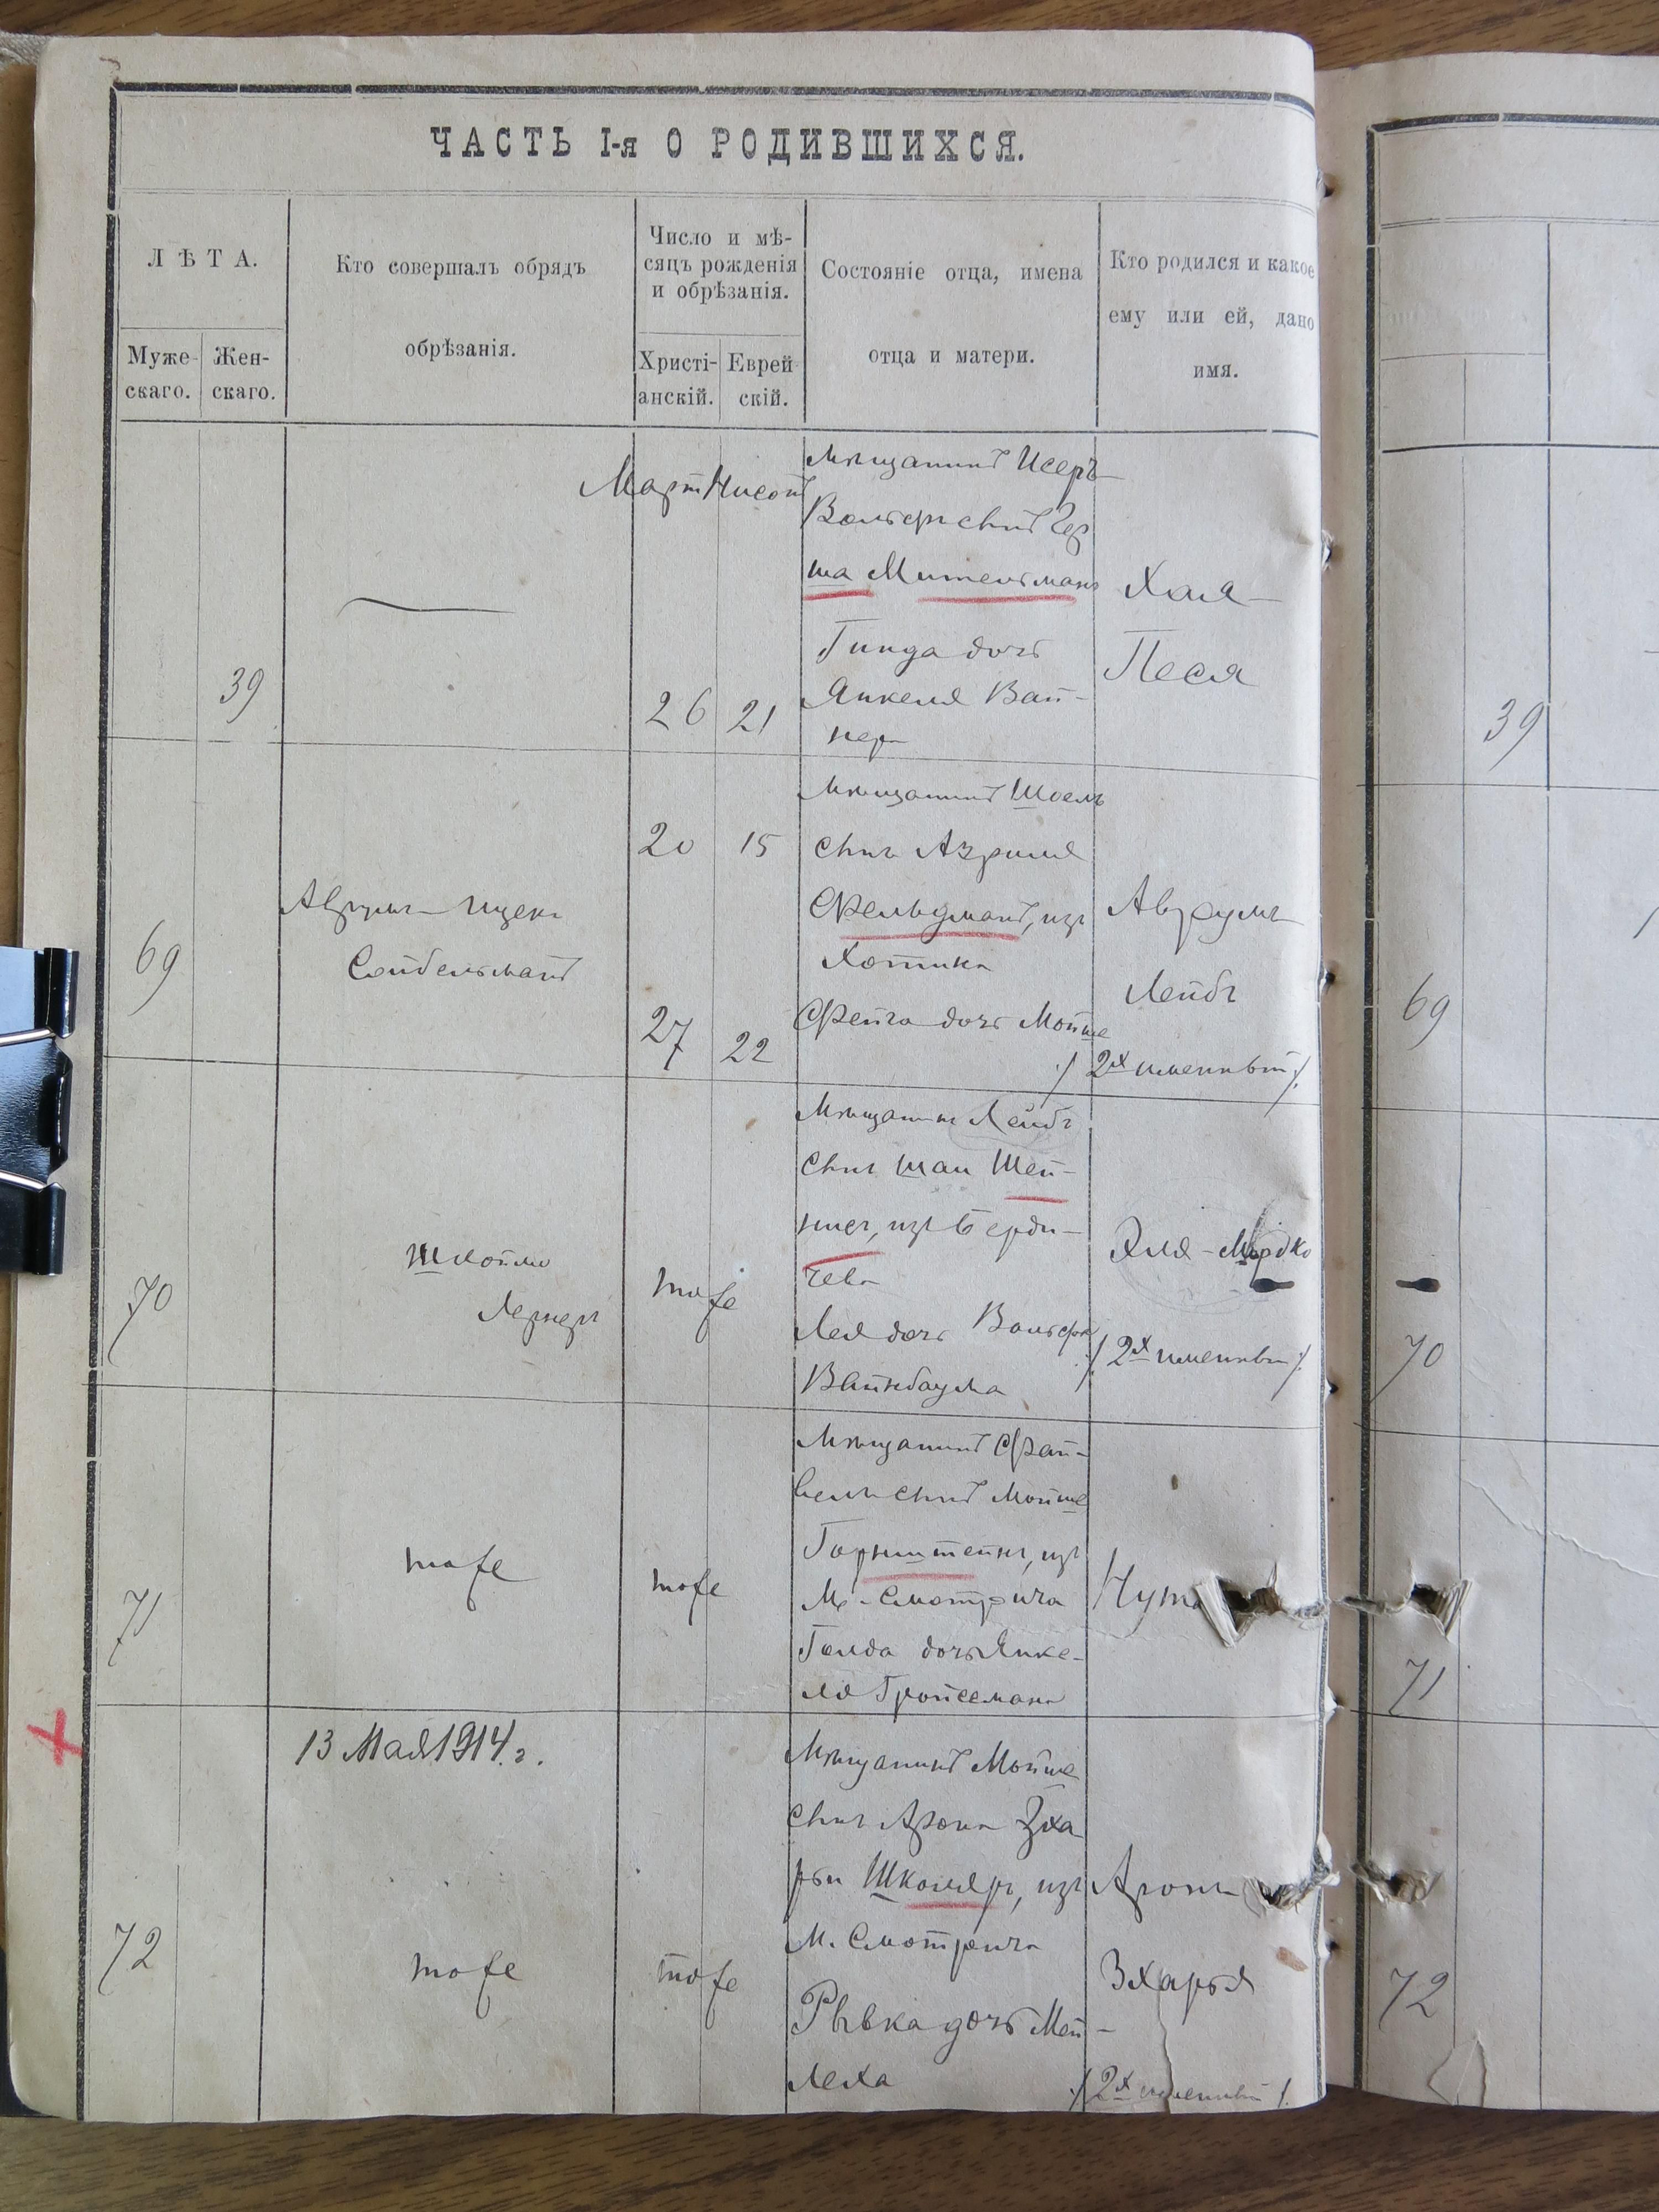 ЧАСТЬ I-я О РОДИВШИХСЯ.
ЛѢТА.
Муже-
скаго.
Жен-
скаго.
Кто совершалъ обрядъ
обрѣзанія.
Число и мѣ-
сяцъ рожденія
и обрѣзанія.
Христі-
анскій.
Еврей
скій.
Состояніе отца, имена
отца и матери.
Кто родился и какое
ему или ей, дано
имя.
39
Март Нисонъ
26 21
Мѣщанинъ Исеръ
Вольф сынъ Гер
ша Мительманъ
Гинда дочь
Янкеля Вай-
нер
Хая-
Песя
39
69
Аврумъ Ицекъ
Сойбельманъ
20 15
27 22
Мѣщанинъ Шоель
сынъ Азриля
Фельдманъ, изъ
Хотина
Фейга дочь Мойше
Аврумъ
Лейбъ
:/ 2х именный /:
69
70
Шлоймо
Лернеръ
тоже
Мѣщанинъ Лейбъ
сынъ Шаи Шей-
нисъ, изъ Берди-
чева
Лея дочь Вольфа
Вайнбаума
Эля-Мордко
:/ 2х именный /:
70
71
тоже
тоже
Мѣщанинъ Фай-
вель сынъ Мойше
Горнштейнъ, изъ
М. Смотрича
Голда дочь Янке-
ля Гройсмана
Нута
71
13 Мая 1914 г.
72
тоже
тоже
Мѣщанинъ Мойше
сынъ Арона Зха
рьи Школяръ, изъ
М. Смотрича
Рывка дочь Мей-
леха
Аронъ
Зхарья
:/ 2х именный /:
72